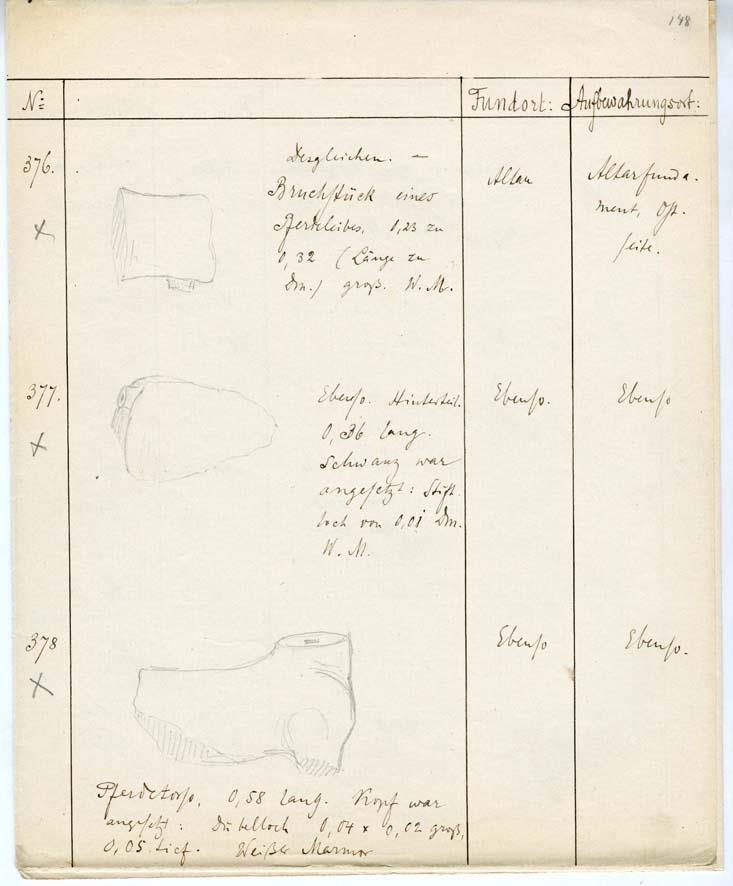 198
№ Fundort: Aufbewahrungsort:
376.
Desgleichen. —
Bruchstück eines
Pferdeleibes, 0,23 zu
0,32 (Länge zu
Dm.) groß. W. M.
Altar
Altarfunda-
ment, Ost-
seite.
377.
Ebenso. Hinterteil.
0,36 lang.
Schwanz war
angesetzt: Stift-
loch von 0,01 Dm.
W. M.
Ebenso.
Ebenso
378
Ebenso
Ebenso.
Pferdetorso, 0,58 lang. Kopf war
angesetzt: Dübelloch 0,04 x 0,02 groß,
0,05 tief. Weißer Marmor